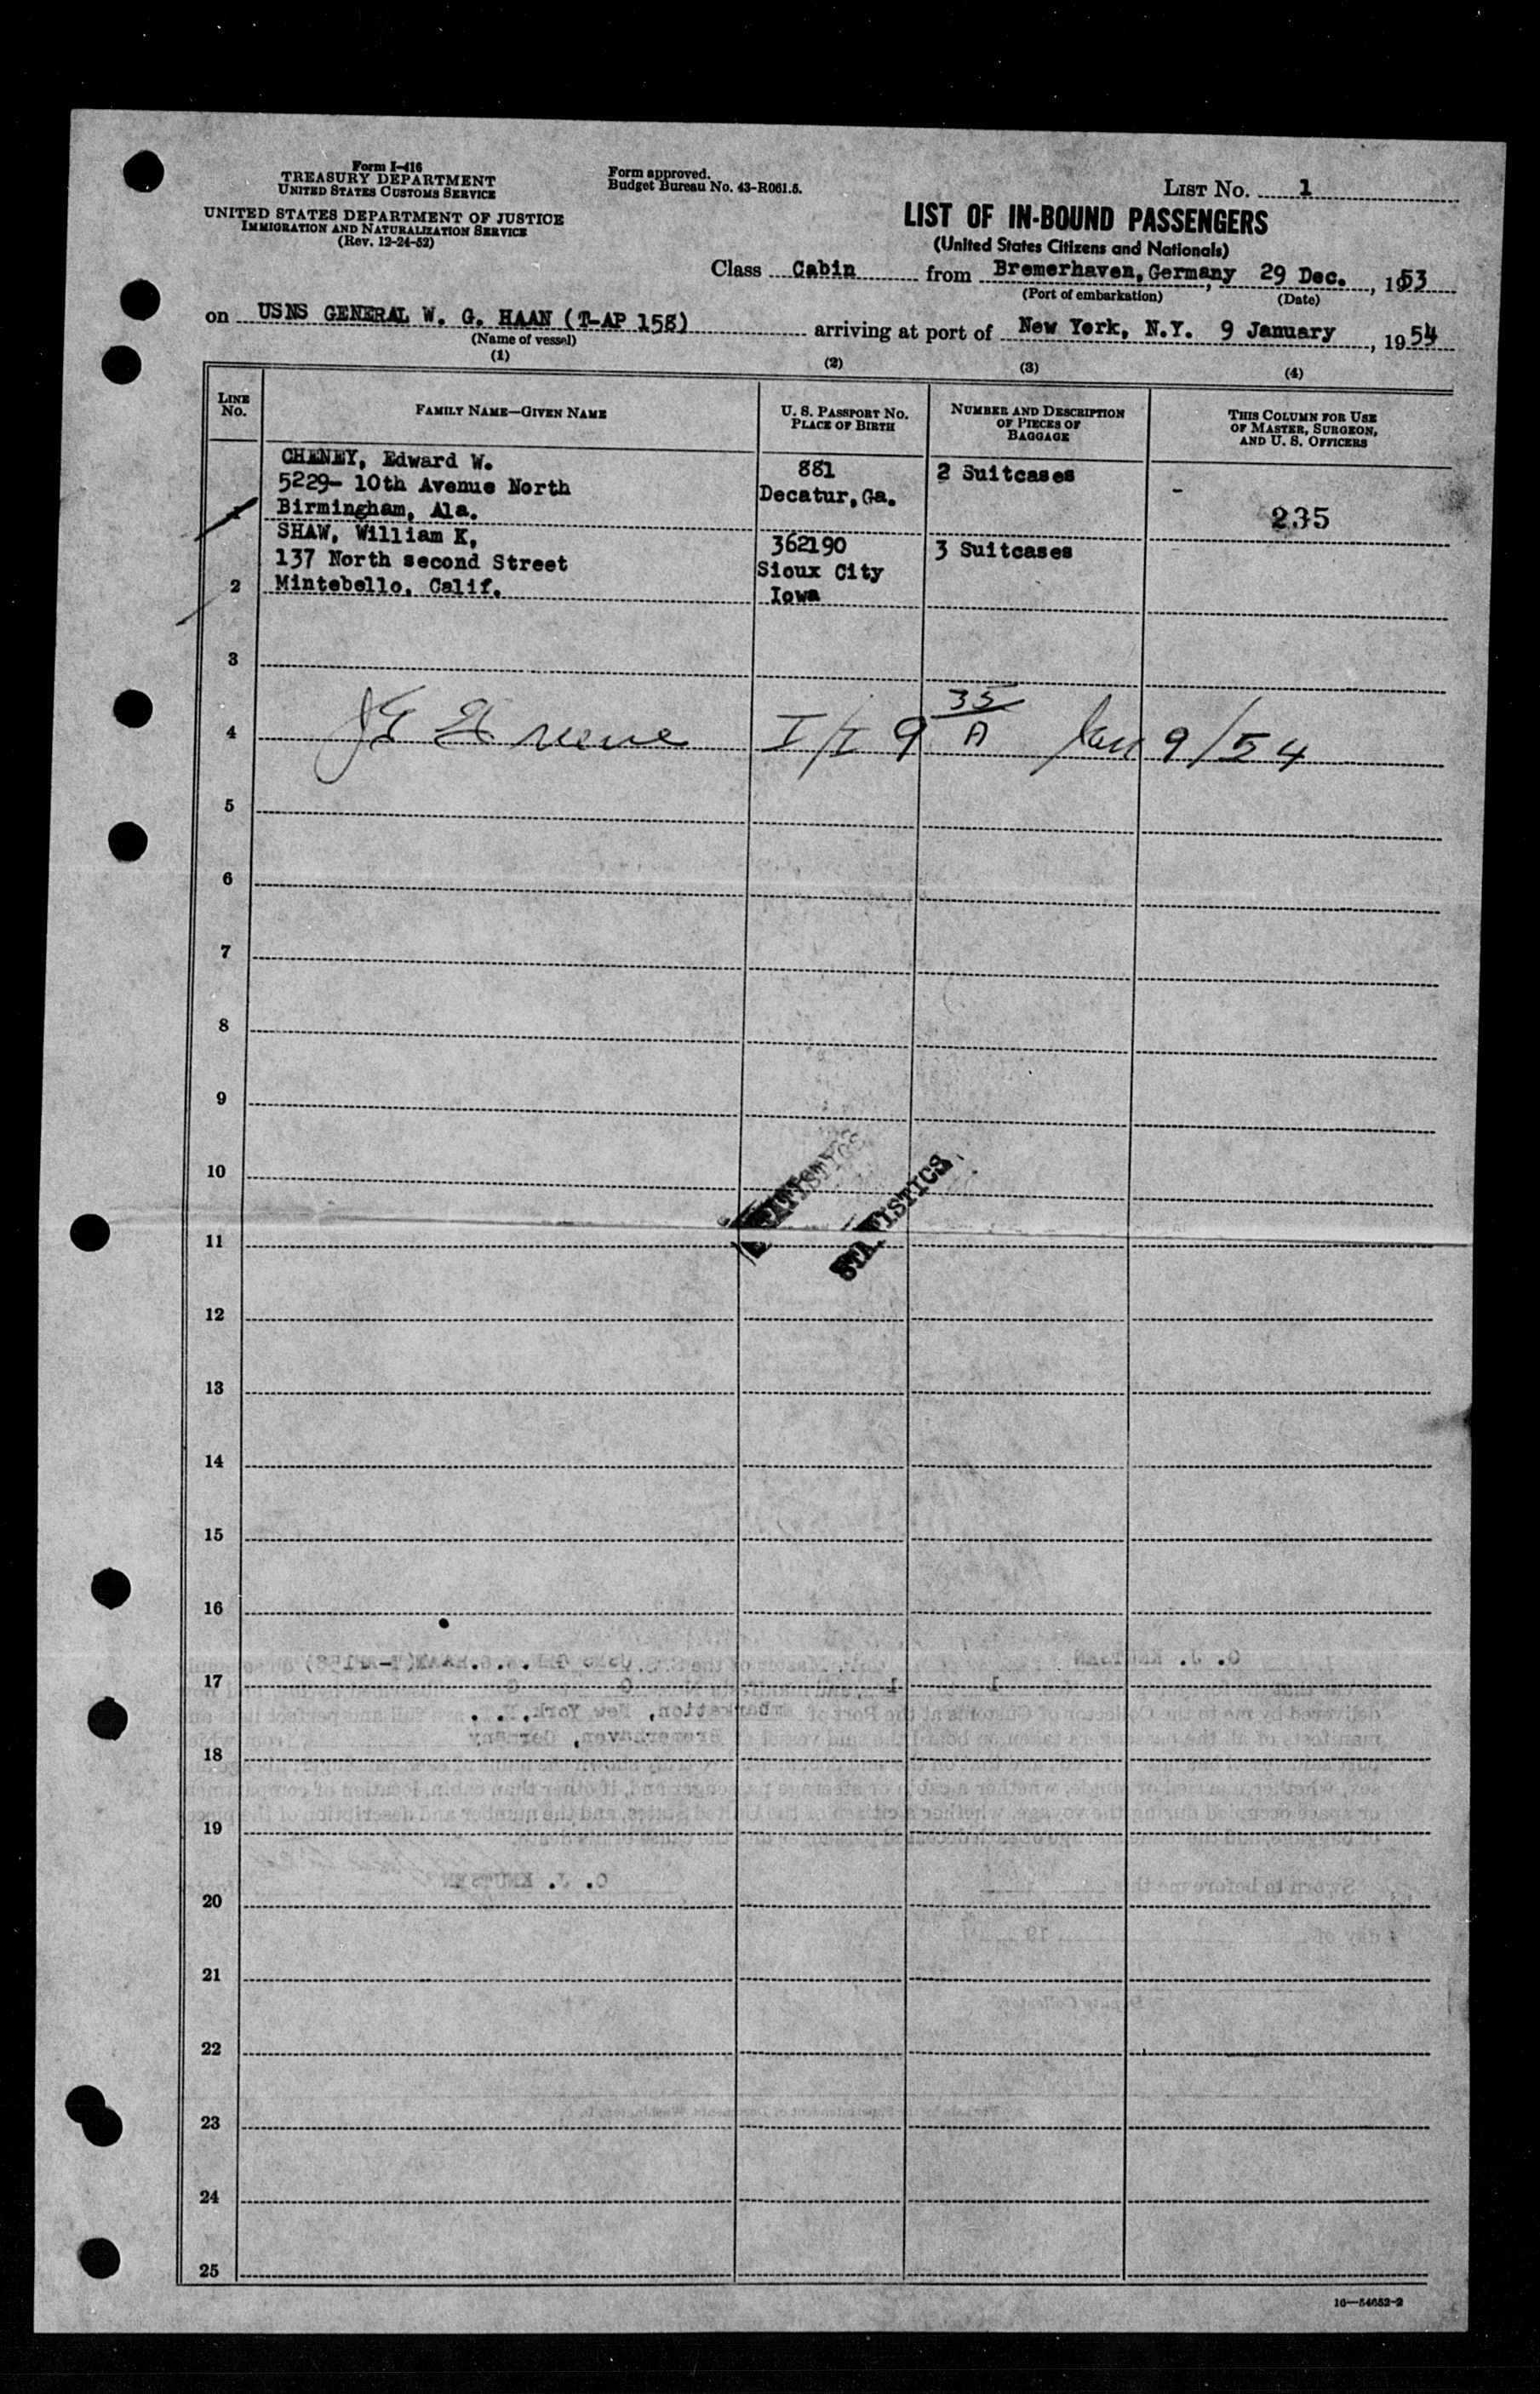 Form I-416
TREASURY DEPARTMENT
UNITED STATES CUSTOMS SERVICE
UNITED STATES DEPARTMENT OF JUSTICE
IMMIGRATION AND NATURALIZATION SERVICE
(Rev. 12-24-52)
Form approved.
Budget Bureau No. 43-R061.5.
LIST NO. 1
LIST OF IN-BOUND PASSENGERS
(United States Citizens and Nationals)
Class Cabin from Bremerhaven, Germany, 29 Dec., 1953
(Port of embarkation) (Date)
on USNS GENERAL W. G. HAAN (T-AP 158) arriving at port of New York, N.Y. 9 January, 1954
(Name of vessel)
(1) (2) (3) (4)
LINE NO. FAMILY NAME—GIVEN NAME U. S. PASSPORT NO. PLACE OF BIRTH NUMBER AND DESCRIPTION OF PIECES OF BAGGAGE THIS COLUMN FOR USE OF MASTER, SURGEON, AND U. S. OFFICERS
CHENEY, Edward W. 881 2 Suitcases
5229- 10th Avenue North Decatur, Ga. -
1 Birmingham, Ala. 235
SHAW, William K, 362190 3 Suitcases
137 North second Street Sioux City
2 Mintebello, Calif. Iowa
3
4 Greene I/I 9 35/A Jan 9/54
5
6
7
8
9
10
STATISTICS
STATISTICS
11
12
13
14
15
16
17
18
19
20
21
22
23
24
25
16—54652-2